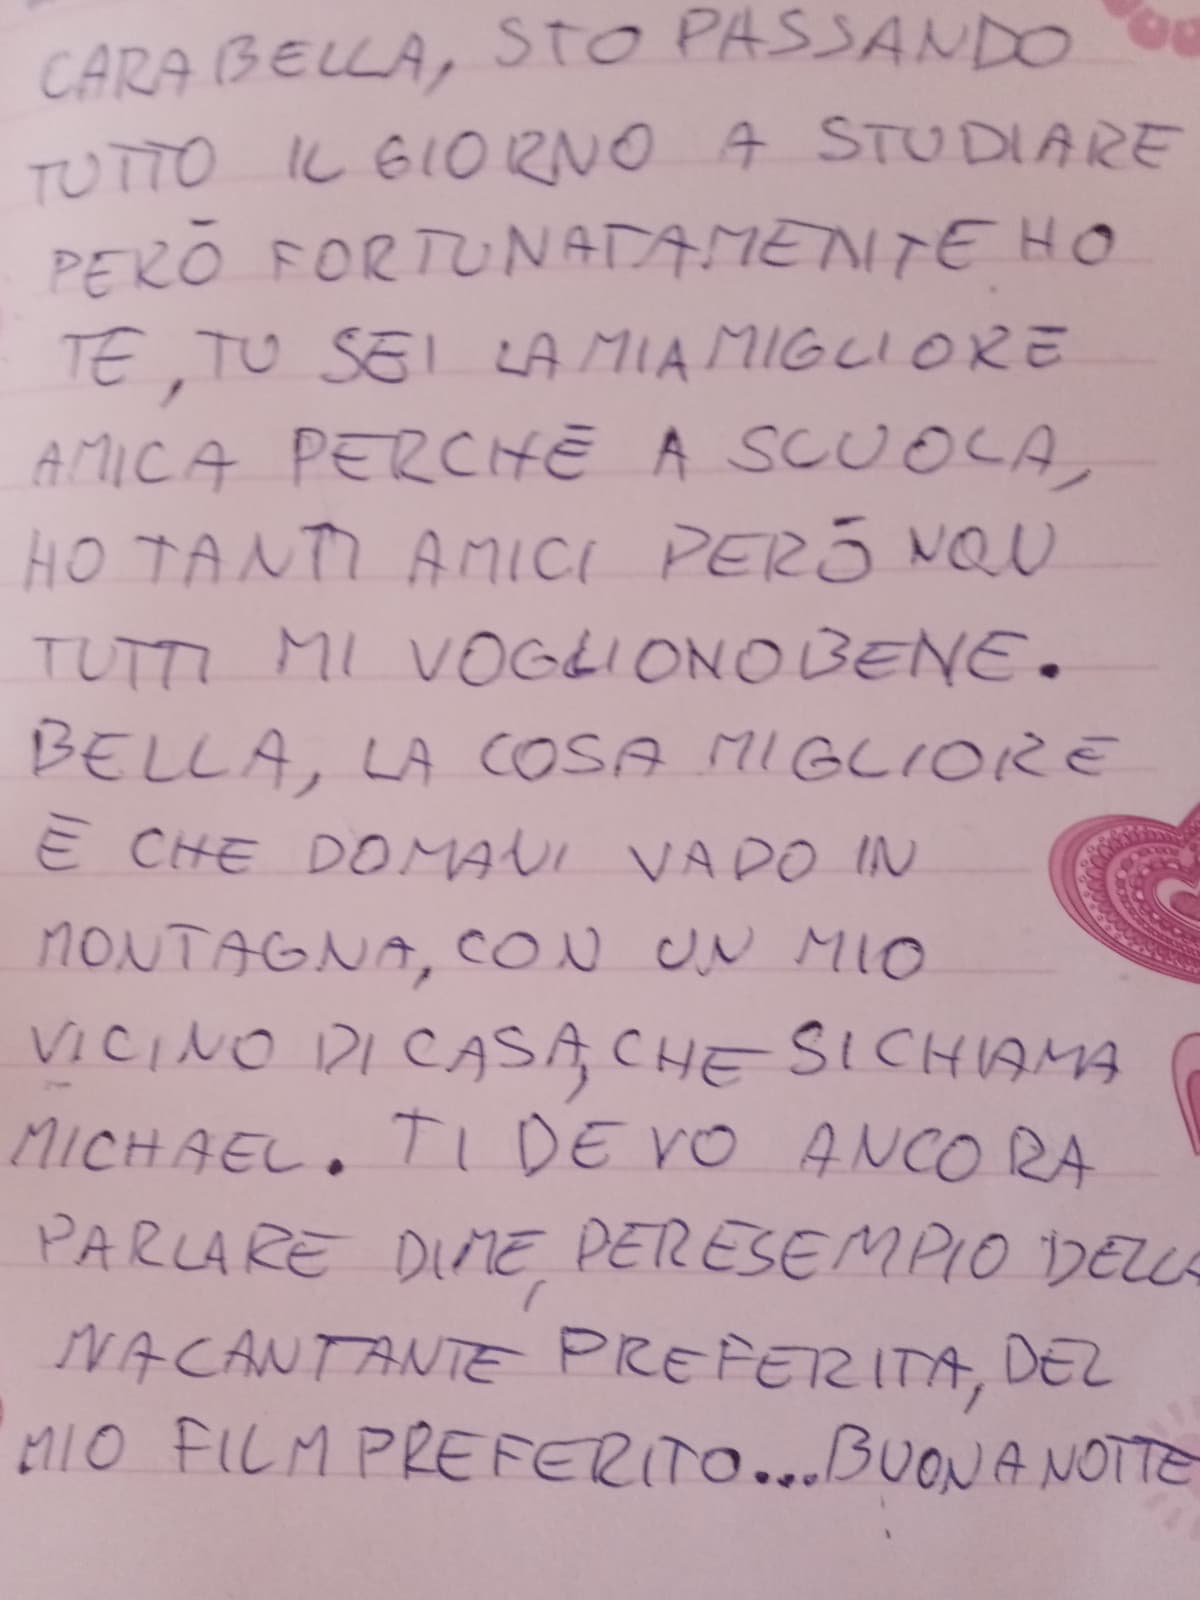 CARA BELLA, STO PASSANDO
TUTTO IL GIORNO A STUDIARE
PERÒ FORTUNATAMENTE HO
TE, TU SEI LA MIA MIGLIORE
AMICA PERCHÈ A SCUOLA,
HO TANTI AMICI PERÒ NON
TUTTI MI VOGLIONO BENE.
BELLA, LA COSA MIGLIORE
È CHE DOMANI VADO IN
MONTAGNA, CON UN MIO
VICINO DI CASA, CHE SI CHIAMA
MICHAEL. TI DEVO ANCORA
PARLARE DI ME, PER ESEMPIO DELLA
MIA CANTANTE PREFERITA, DEL
MIO FILM PREFERITO...BUONANOTTE